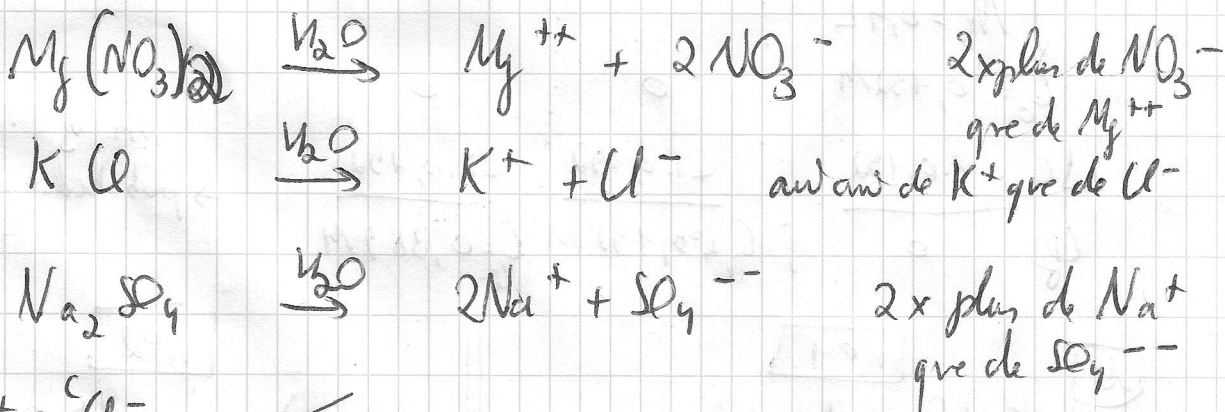 Mg(NO₃)₂ —H₂O→ Mg⁺⁺ + 2 NO₃⁻ 2x plus de NO₃⁻
que de Mg⁺⁺
KCl —H₂O→ K⁺ + Cl⁻ autant de K⁺ que de Cl⁻
Na₂SO₄ —H₂O→ 2Na⁺ + SO₄⁻⁻ 2x plus de Na⁺
que de SO₄⁻⁻